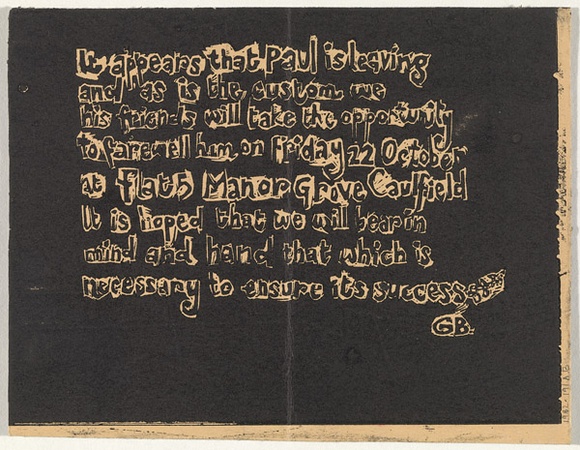 It appears that Paul is leaving
and as is the custom we
his friends will take the opportunity
to farewell him on Friday 22 October
at Flat 5 Manor Grove Caulfield
It is hoped that we will bear in
mind and hand that which is
necessary to ensure its success
GB.